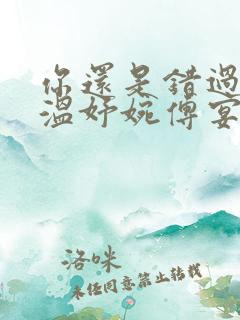 你還是錯過
溫妤婉傅宴
洛咪
未經同意禁止轉載